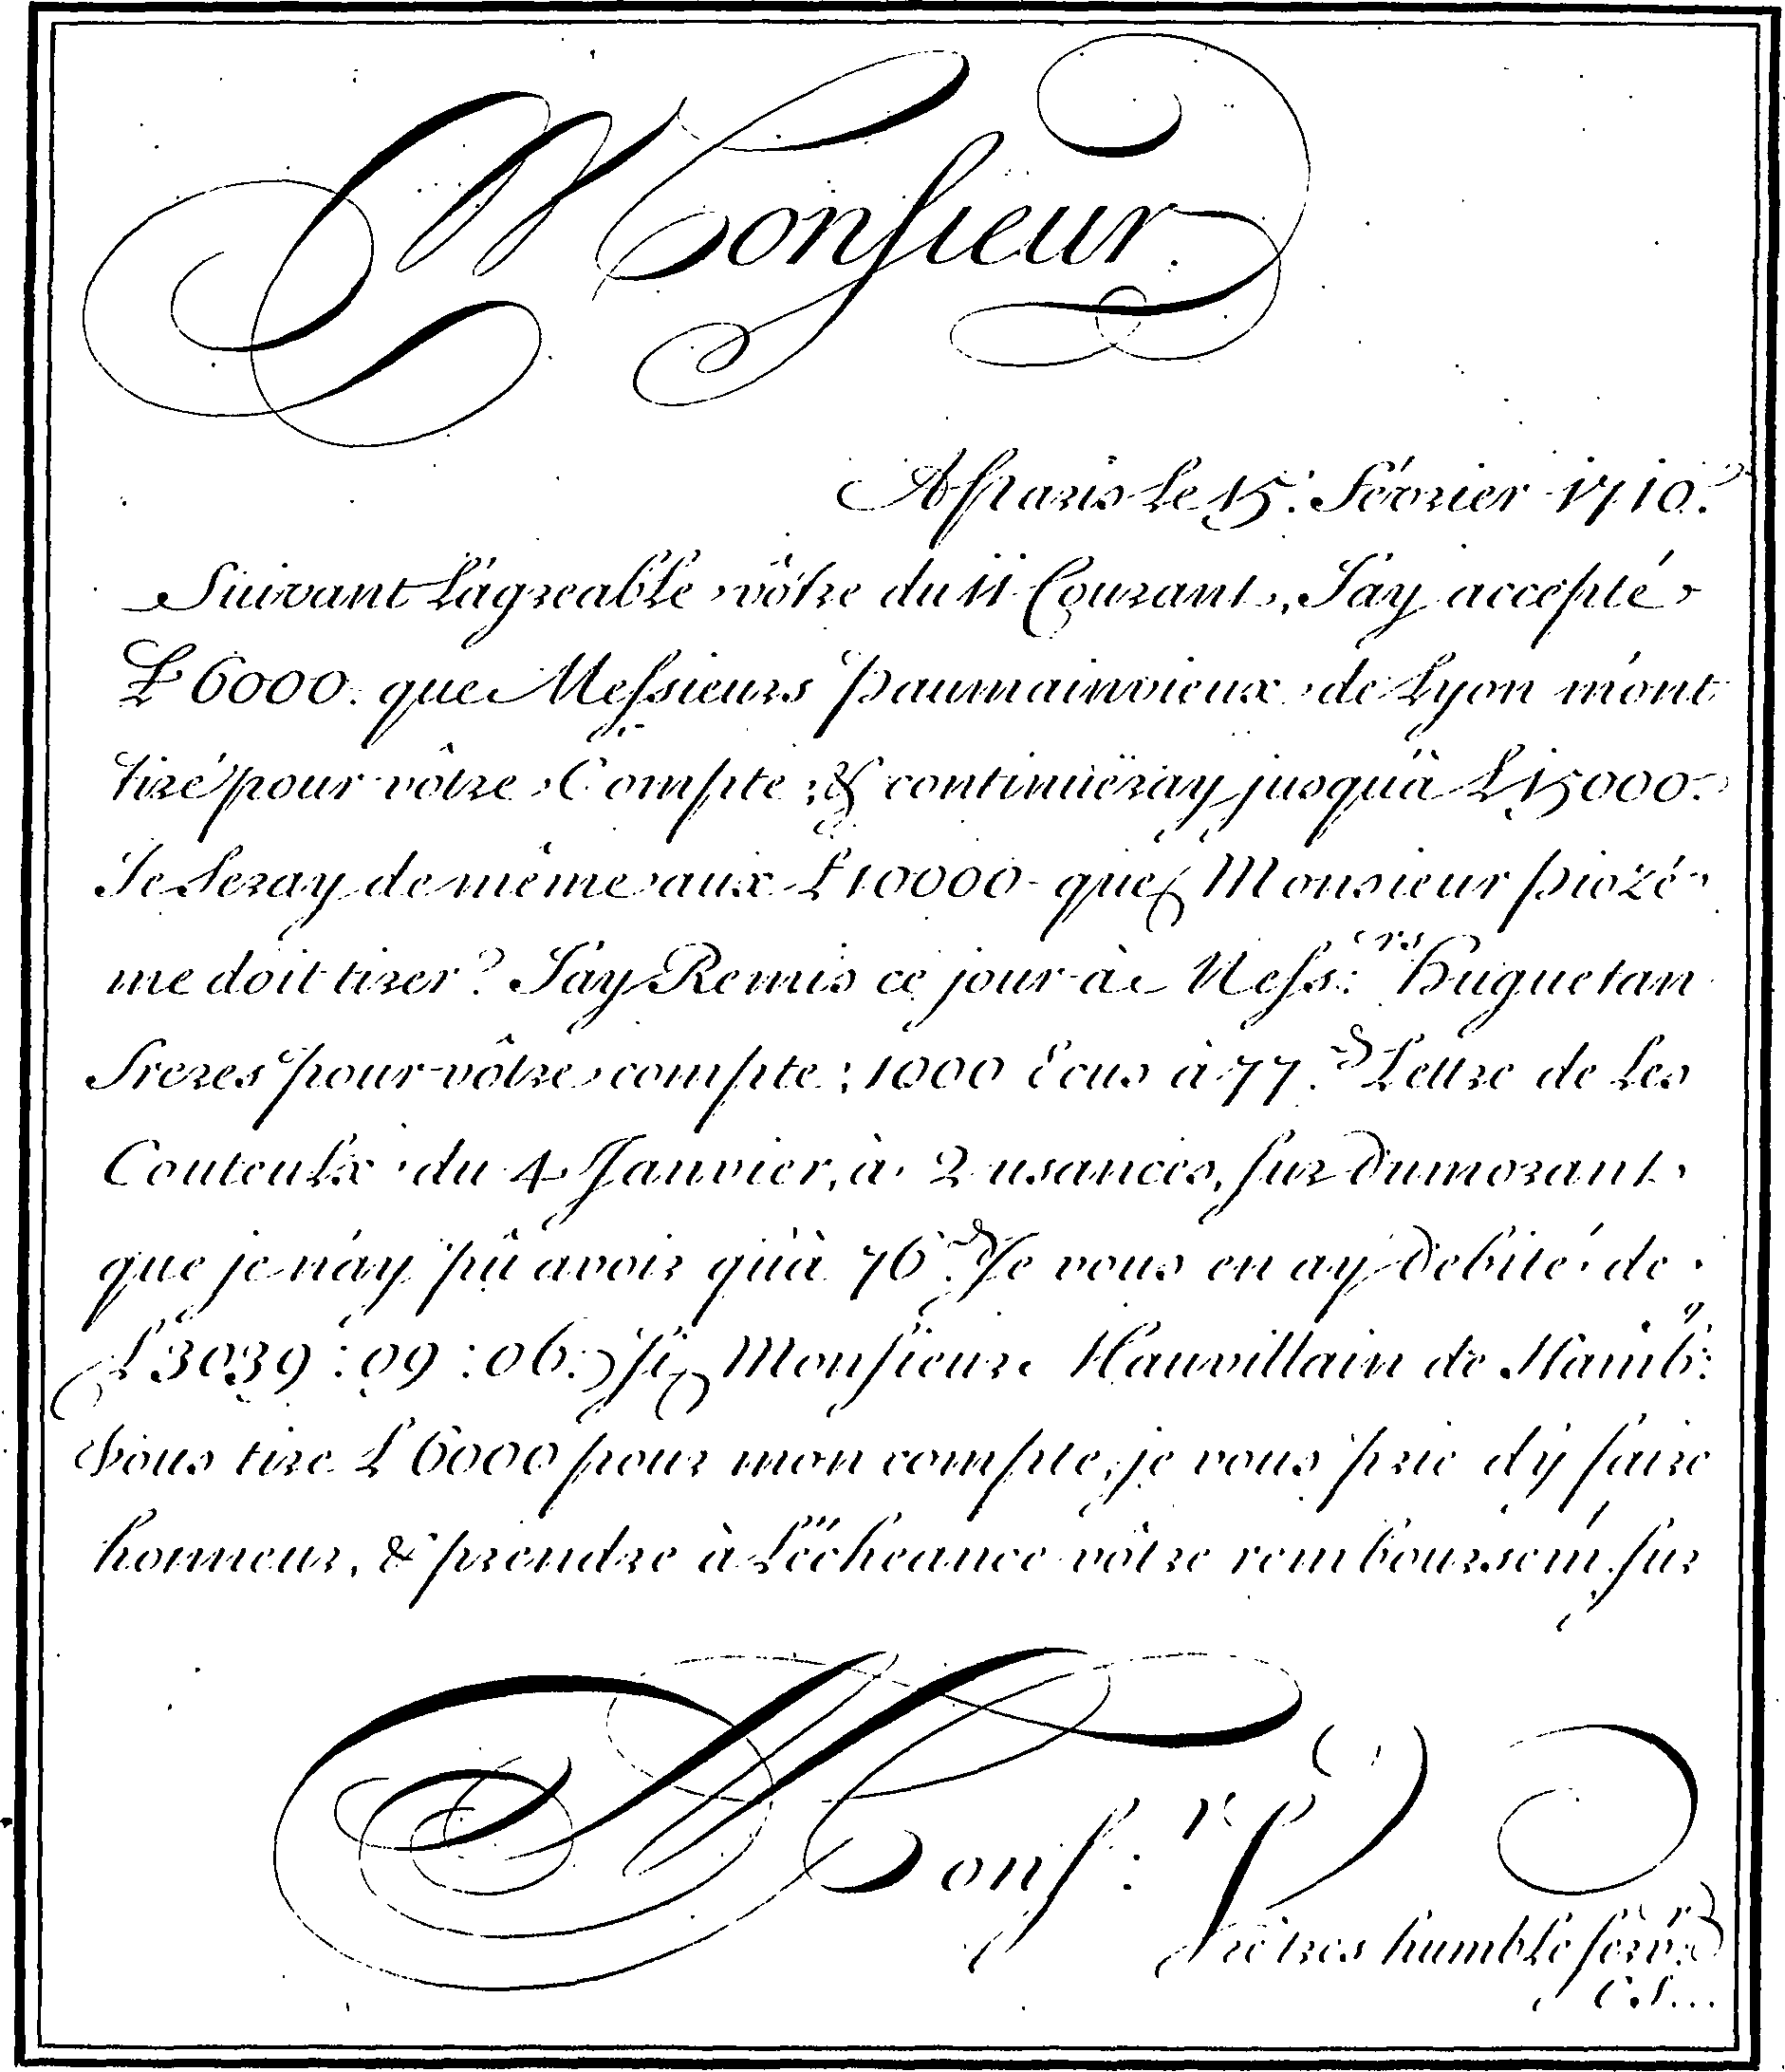 Monsieur.
A Paris Le 15. Février 1710.
Suivant L'agreable vôtre du 11 Courant, J'ay accepté
£ 6000. que Messieurs paumainvieux de Lyon m'ont
tiré pour vôtre Compte; & continüeray jusqu'à £ 15000.
Je Feray de même aux £ 10000 que Monsieur piozé
me doit tirer? J'ay Remis ce jour à Mess:rs Huguetan
Freres pour vôtre compte; 1000 Ecus à 77. Lettre de Les
Couteulx du 4 Janvier, à 2 usances, sur Dumorant
que je n'ay pû avoir qu'à 76. Je vous en ay Debité de
£ 3039:09:06. si Monsieur Hauvillain de Hamb:
Vous tire £ 6000 pour mon compte, je vous prie d'ÿ faire
honneur, & prendre à L'écheance vôtre remboursem.t sur
Mons:r
Vôtres humble serv.r
C.S...